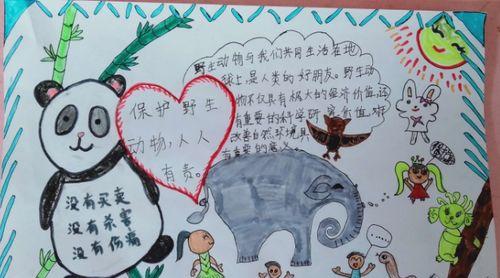 野生动物与我们共同生活在地
球上,是人类的好朋友。野生动
物不仅具有极大的经济价值,还
有重要的科学研究价值,对
改善自然环境具
有重要的意义。
保护野生
动物,人人
有责。
没有买卖
没有杀害
没有伤痛